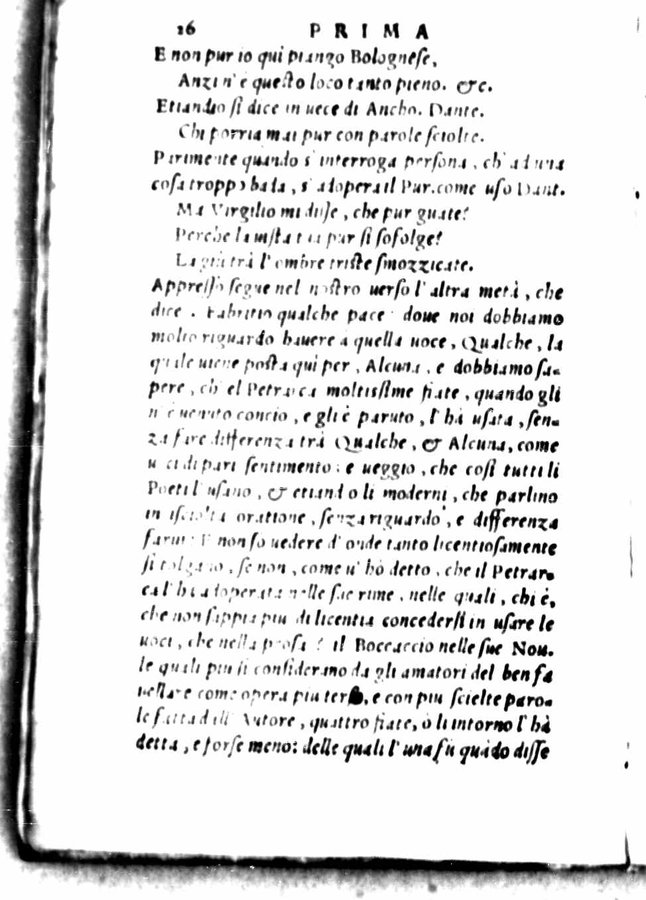 26 PRIMA
E non pur io quì piango Bolognese,
Anzi n'è questo loco tanto pieno. &c.
Etiandio si dice in uece di Ancho. Dante.
Chi porria mai pur con parole sciolte.
Parimente quando s'interroga persona, ch'ad una
cosa troppo bada, s'adopera il Pur. come uso Dant.
Ma Virgilio mi disse, che pur guate?
Perche la uista tua pur si sofolge?
La giù trà l'ombre triste smozzicate.
Appresso segue nel nostro uerso l'altra metà, che
dice. Fabritio qualche pace: doue noi dobbiamo
molto riguardo hauere à quella uoce, Qualche, la
quale uiene posta quì per, Alcuna, e dobbiamo sa-
pere, ch'el Petrarca moltissime fiate, quando gli
n'è uenuto concio, e gli è paruto, l'hà usata, sen-
za fare differenza trà Qualche, & Alcuna, come
uoci di pari sentimento: e ueggio, che così tutti li
Poeti l'usano, & etiandio li moderni, che parlino
in isciolta oratione, senza riguardo, e differenza
farui: E non so uedere d'onde tanto licentiosamente
si tolgano, se non, come u'hò detto, che il Petrar-
ca l'hà adoperata nelle sue rime, nelle quali, chi è,
che non sappia piu di licentia concedersi in usare le
uoci, che nella prosa? il Boccaccio nelle sue Nou.
le quali piu si considerano da gli amatori del ben fa
uellare come opera piu tersa, e con piu scielte paro-
le fatta dall'Autore, quattro fiate, ò lì intorno l'hà
detta, e forse meno: delle quali l'una fù quãdo disse